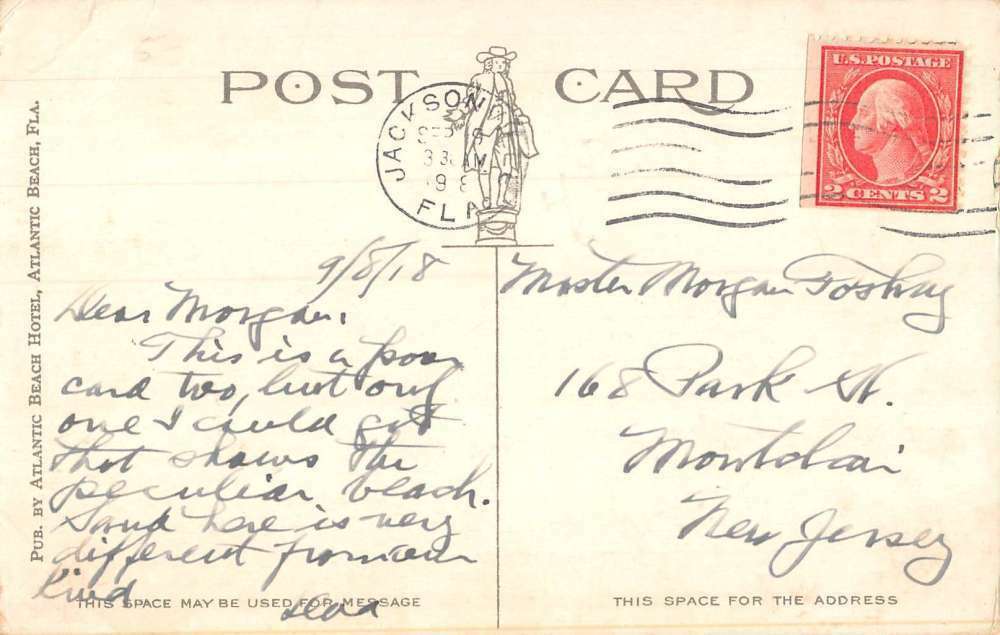 POST CARD
U.S. POSTAGE
2 CENTS 2
JACKSON
FLA
PUB. BY ATLANTIC BEACH HOTEL, ATLANTIC BEACH, FLA.
9/8/18
Dear Morgan:
This is a poor
card too, but only
one I could get
that shows the
peculiar beach.
Sand here is very
different from our
kind
Dad
Master Morgan
168 Park St.
Montclair
New Jersey
THIS SPACE MAY BE USED FOR MESSAGE
THIS SPACE FOR THE ADDRESS